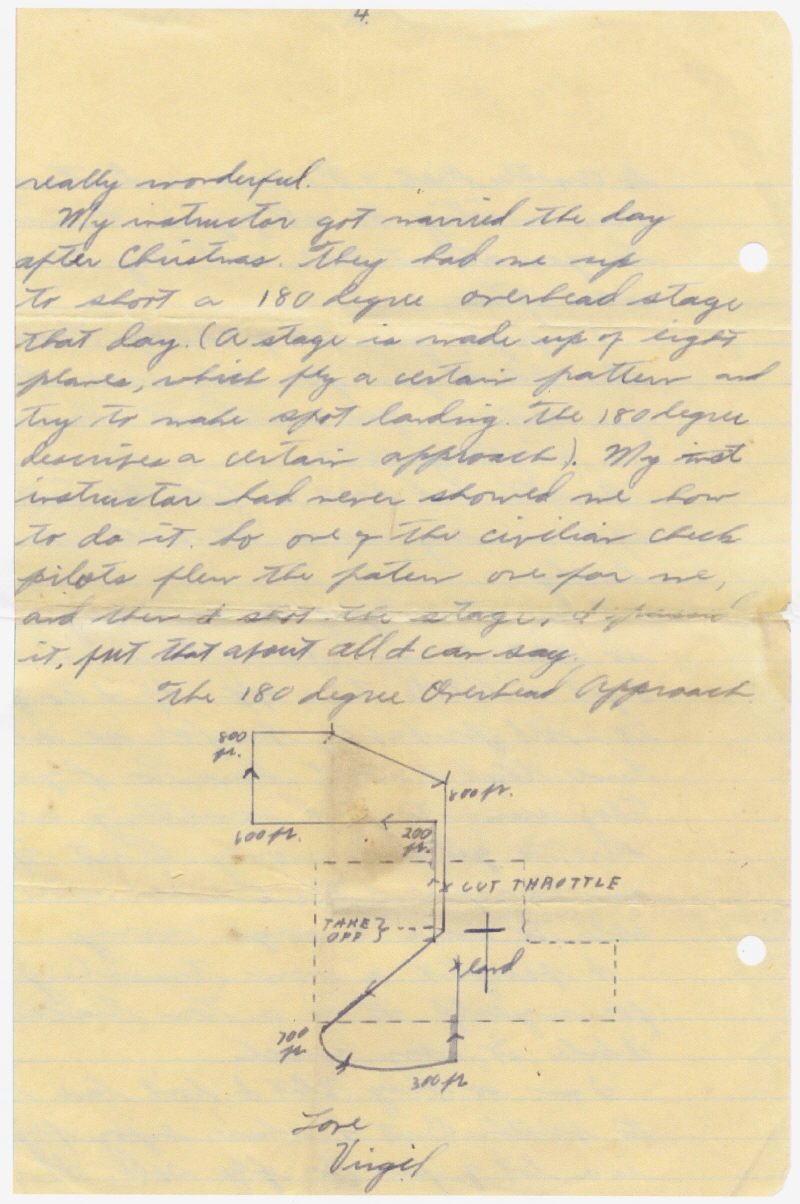 4.
really wonderful.
My instructor got married the day
after Christmas. They had me up
to shoot a 180 degree overhead stage
that day. (A stage is made up of eight
planes, which fly a certain pattern and
try to make spot landing. The 180 degree
describes a certain approach). My inst
instructor had never showed me how
to do it. So one of the civilian check
pilots flew the patern one for me,
and then I shot the stage. I passed
it, but that about all I can say.
The 180 degree Overhead Approach
800 ft.
800 ft.
600 ft.
200 ft.
x CUT THROTTLE
TAKE OFF
x land
700 ft
300 ft
Love
Virgil